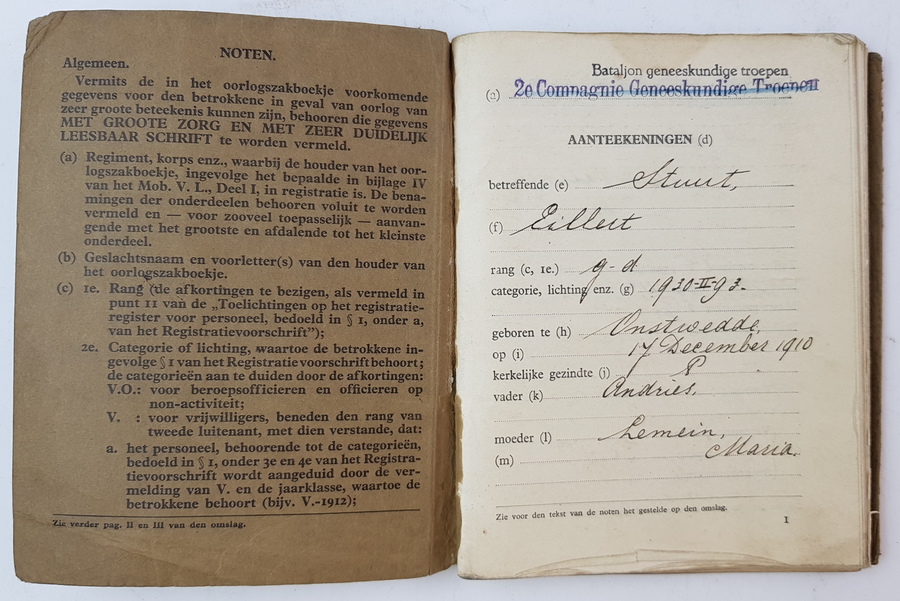 NOTEN.
Algemeen.
Vermits de in het oorlogszakboekje voorkomende
gegevens voor den betrokkene in geval van oorlog van
zeer groote beteekenis kunnen zijn, behooren die gegevens
MET GROOTE ZORG EN MET ZEER DUIDELIJK
LEESBAAR SCHRIFT te worden vermeld.
(a) Regiment, korps enz., waarbij de houder van het oor-
logszakboekje, ingevolge het bepaalde in bijlage IV
van het Mob. V. L., Deel I, in registratie is. De bena-
mingen der onderdeelen behooren voluit te worden
vermeld en — voor zooveel toepasselijk — aanvan-
gende met het grootste en afdalende tot het kleinste
onderdeel.
(b) Geslachtsnaam en voorletter(s) van den houder van
het oorlogszakboekje.
(c) 1e. Rang (de afkortingen te bezigen, als vermeld in
punt 11 van de „Toelichtingen op het registratie-
register voor personeel, bedoeld in § 1, onder a,
van het Registratievoorschrift");
2e. Categorie of lichting, waartoe de betrokkene in-
gevolge § 1 van het Registratievoorschrift behoort;
de categorieën aan te duiden door de afkortingen:
V.O.: voor beroepsofficieren en officieren op
non-activiteit;
V. : voor vrijwilligers, beneden den rang van
tweede luitenant, met dien verstande, dat:
a. het personeel, behoorende tot de categorieën,
bedoeld in § 1, onder 3e en 4e van het Registra-
tievoorschrift wordt aangeduid door de ver-
melding van V. en de jaarklasse, waartoe de
betrokkene behoort (bijv. V.-1912);
Zie verder pag. II en III van den omslag.
Bataljon geneeskundige troepen
(a) 2e Compagnie Geneeskundige Troepen
AANTEEKENINGEN (d)
betreffende (e) Stuut,
(f) Eillert
rang (c, 1e.) g-d
categorie, lichting enz. (g) 1930-II-93.
geboren te (h) Onstwedde,
op (i) 17 December 1910
kerkelijke gezindte (j) P
vader (k) Andries,
moeder (l) Lemein,
(m) Maria.
Zie voor den tekst van de noten het gestelde op den omslag.
1